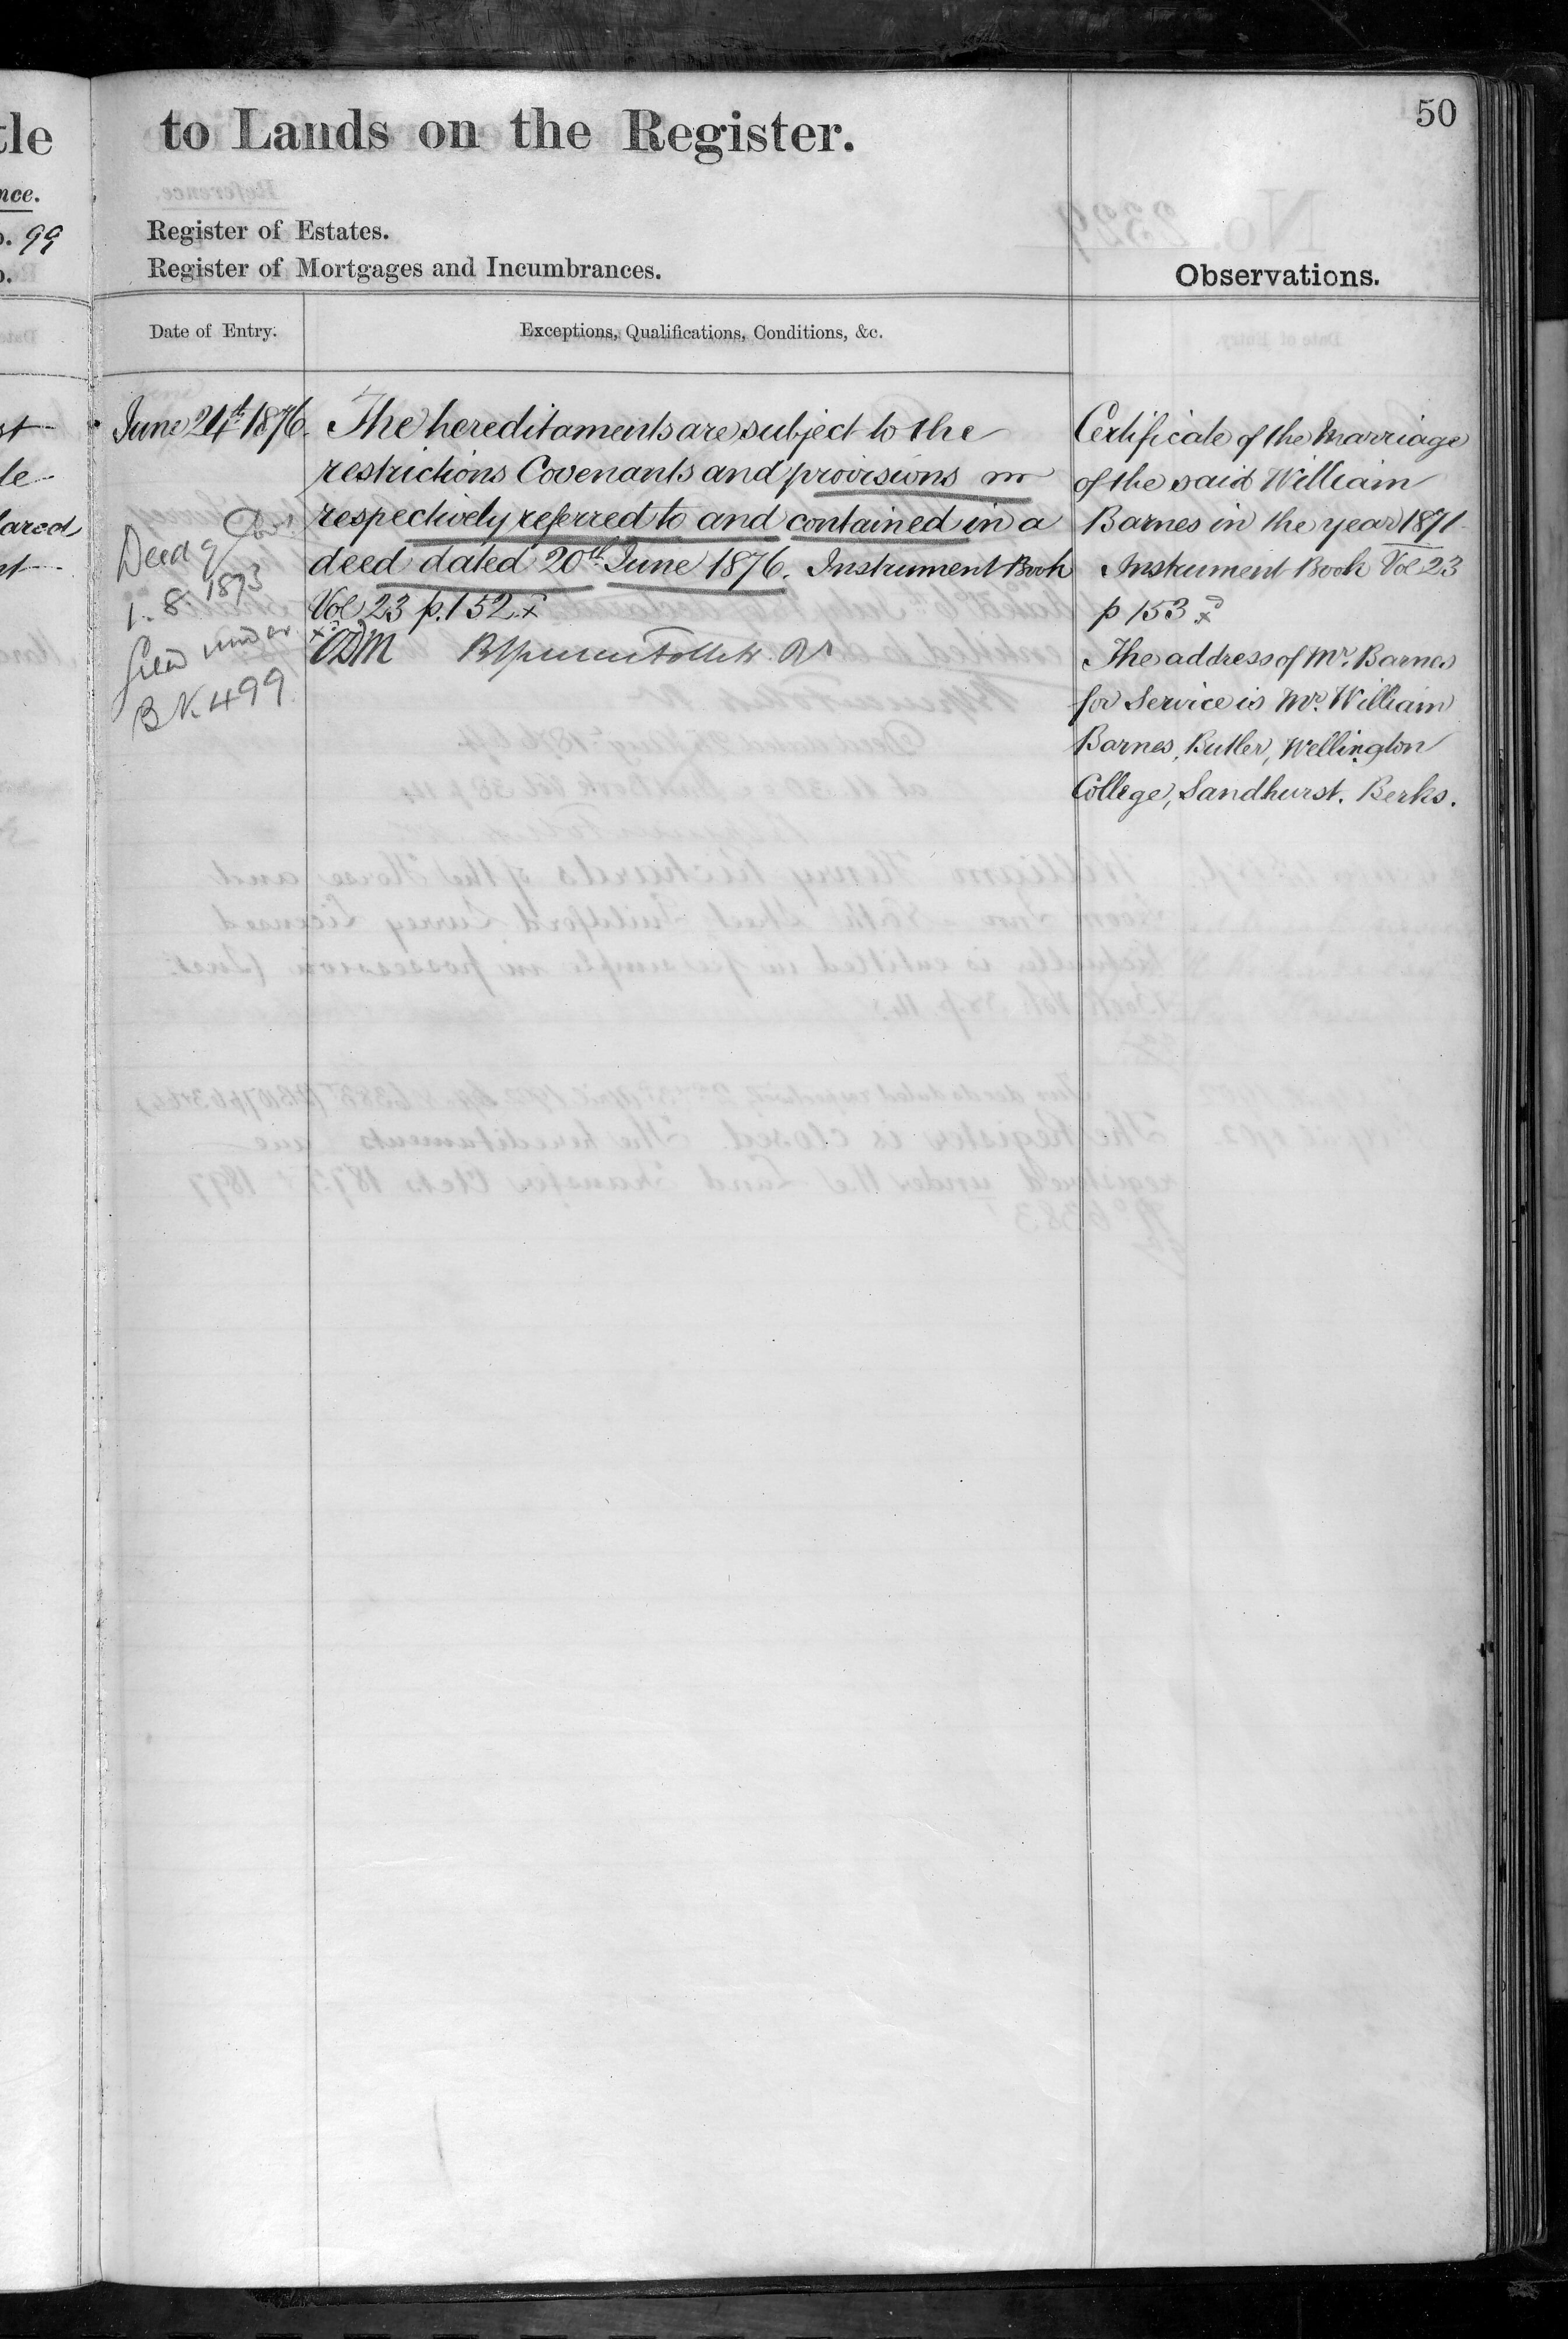 50
to Lands on the Register.
Register of Estates.
Register of Mortgages and Incumbrances.
Observations.
Date of Entry.
Exceptions, Qualifications, Conditions, &c.
June 24th 1876.
The hereditaments are subject to the
restrictions Covenants and provisions
respectively referred to and contained in a
deed dated 20th June 1876. Instrument Book
Vol 23 p. 152.
Deed of
1. 8. 1873
filed under
BK 499
Certificate of the Marriage
of the said William
Barnes in the year 1871
Instrument Book Vol 23
p 153
The address of Mr. Barnes
for Service is Mr. William
Barnes, Butler, Wellington
College, Sandhurst. Berks.
tle
nce.
o. 99
o.
st
le
lared
nt